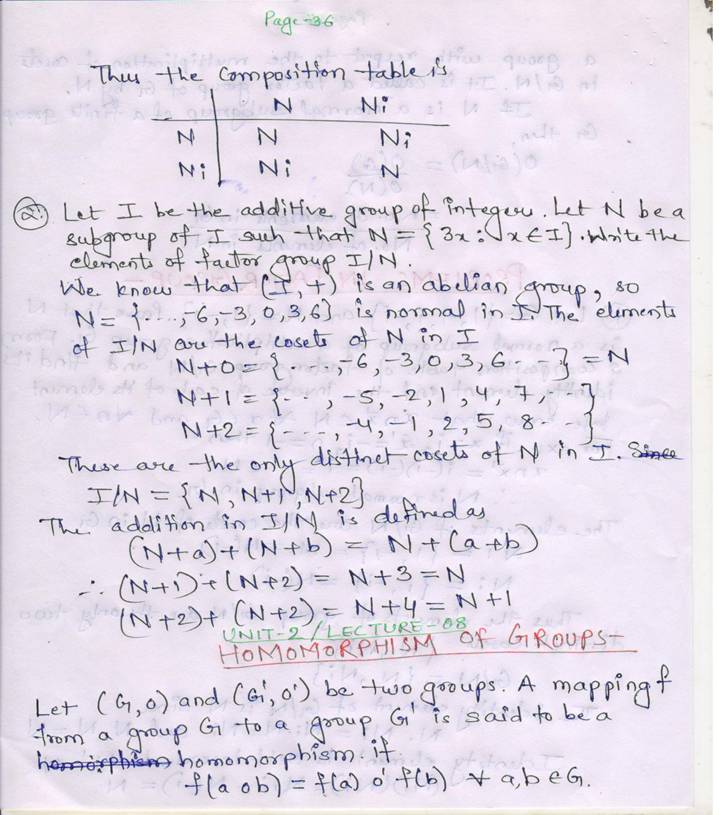 Page-36
Thus the Composition table is
N Ni
N N Ni
Ni Ni N
Q. Let I be the additive group of integers. Let N be a
subgroup of I such that N = {3x : x ∈ I}. Write the
elements of factor group I/N.
We know that (I, +) is an abelian group, so
N = {..., -6, -3, 0, 3, 6} is normal in I. The elements
of I/N are the cosets of N in I
N+0 = { - - -6, -3, 0, 3, 6, - - } = N
N+1 = { - - ., -5, -2, 1, 4, 7, - - }
N+2 = { . . . ., -4, -1, 2, 5, 8 - - - }
These are the only distinct cosets of N in I. Since
I/N = {N, N+1, N+2}
The addition in I/N is defined as
(N+a) + (N+b) = N + (a+b)
∴ (N+1) + (N+2) = N+3 = N
(N+2) + (N+2) = N+4 = N+1
UNIT-2/LECTURE-08
HOMOMORPHISM OF GROUPS-
Let (G, o) and (G', o') be two groups. A mapping f
from a group G to a group G' is said to be a
homomorphism if
f(a o b) = f(a) o' f(b) ∀ a, b ∈ G.